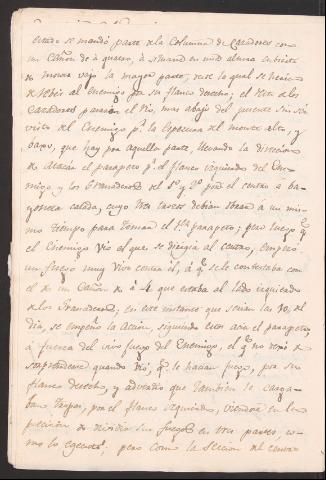 se mandó parte de la Columna de Cazadores con
un Cañon de á quatro, á situarse en una altura cubierta
de monte bajo la mayor parte, desde la qual se havia
de batir al Enemigo por su flanco derecho; el resto de los
Cazadores pasaron el Rio, mas abajo del puente sin ser
vistos del Enemigo pr. la espesura del monte alto, y
bajo, que hay por aquella parte, llevando la direccion
de atacar el parapeto pr. el flanco izquierdo del Ene-
migo, y los Granaderos del 1º y 2º por el centro a ba-
yoneta calada, cuyos tres trozos debian obrar á un mis-
mo tiempo para tomar el 1er. parapeto; pero luego q.
el Enemigo vio el que se dirigia al centro, empezó
un fuego muy vivo contra él, á q. se le contestaba con
el de un Cañon de á 4 que estaba al lado izquierdo
de los Granaderos; en este instante que serian las 10, del
dia, se empeñó la Accion, siguiendo estos acia el parapeto
á fuerza del vivo fuego del Enemigo, el q. no dejó de
sorprenderse quando vio, q. le hacian fuego, por su
flanco derecho, y advertido que tambien le carga-
ban Tropas, por el flanco izquierdo, viendose en la
precision de dividir sus fuegos en tres partes, co-
mo lo egecutó; pero como la Seccion del centro